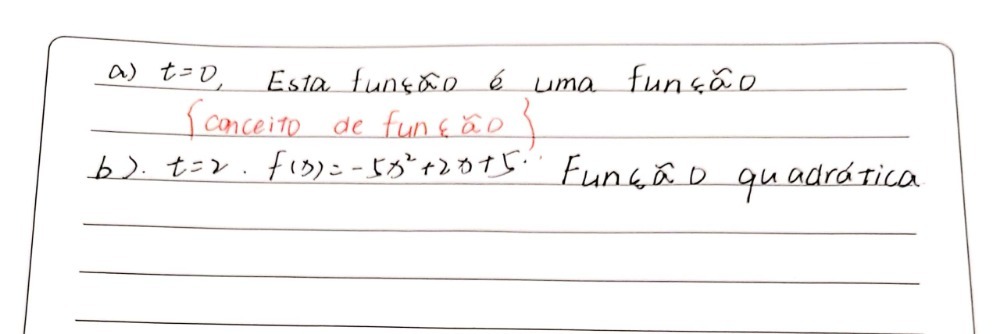 a) t=0, Esta função é uma função
{conceito de função}
b). t=2. f(x)=-5x²+2x+5.. Função quadrática